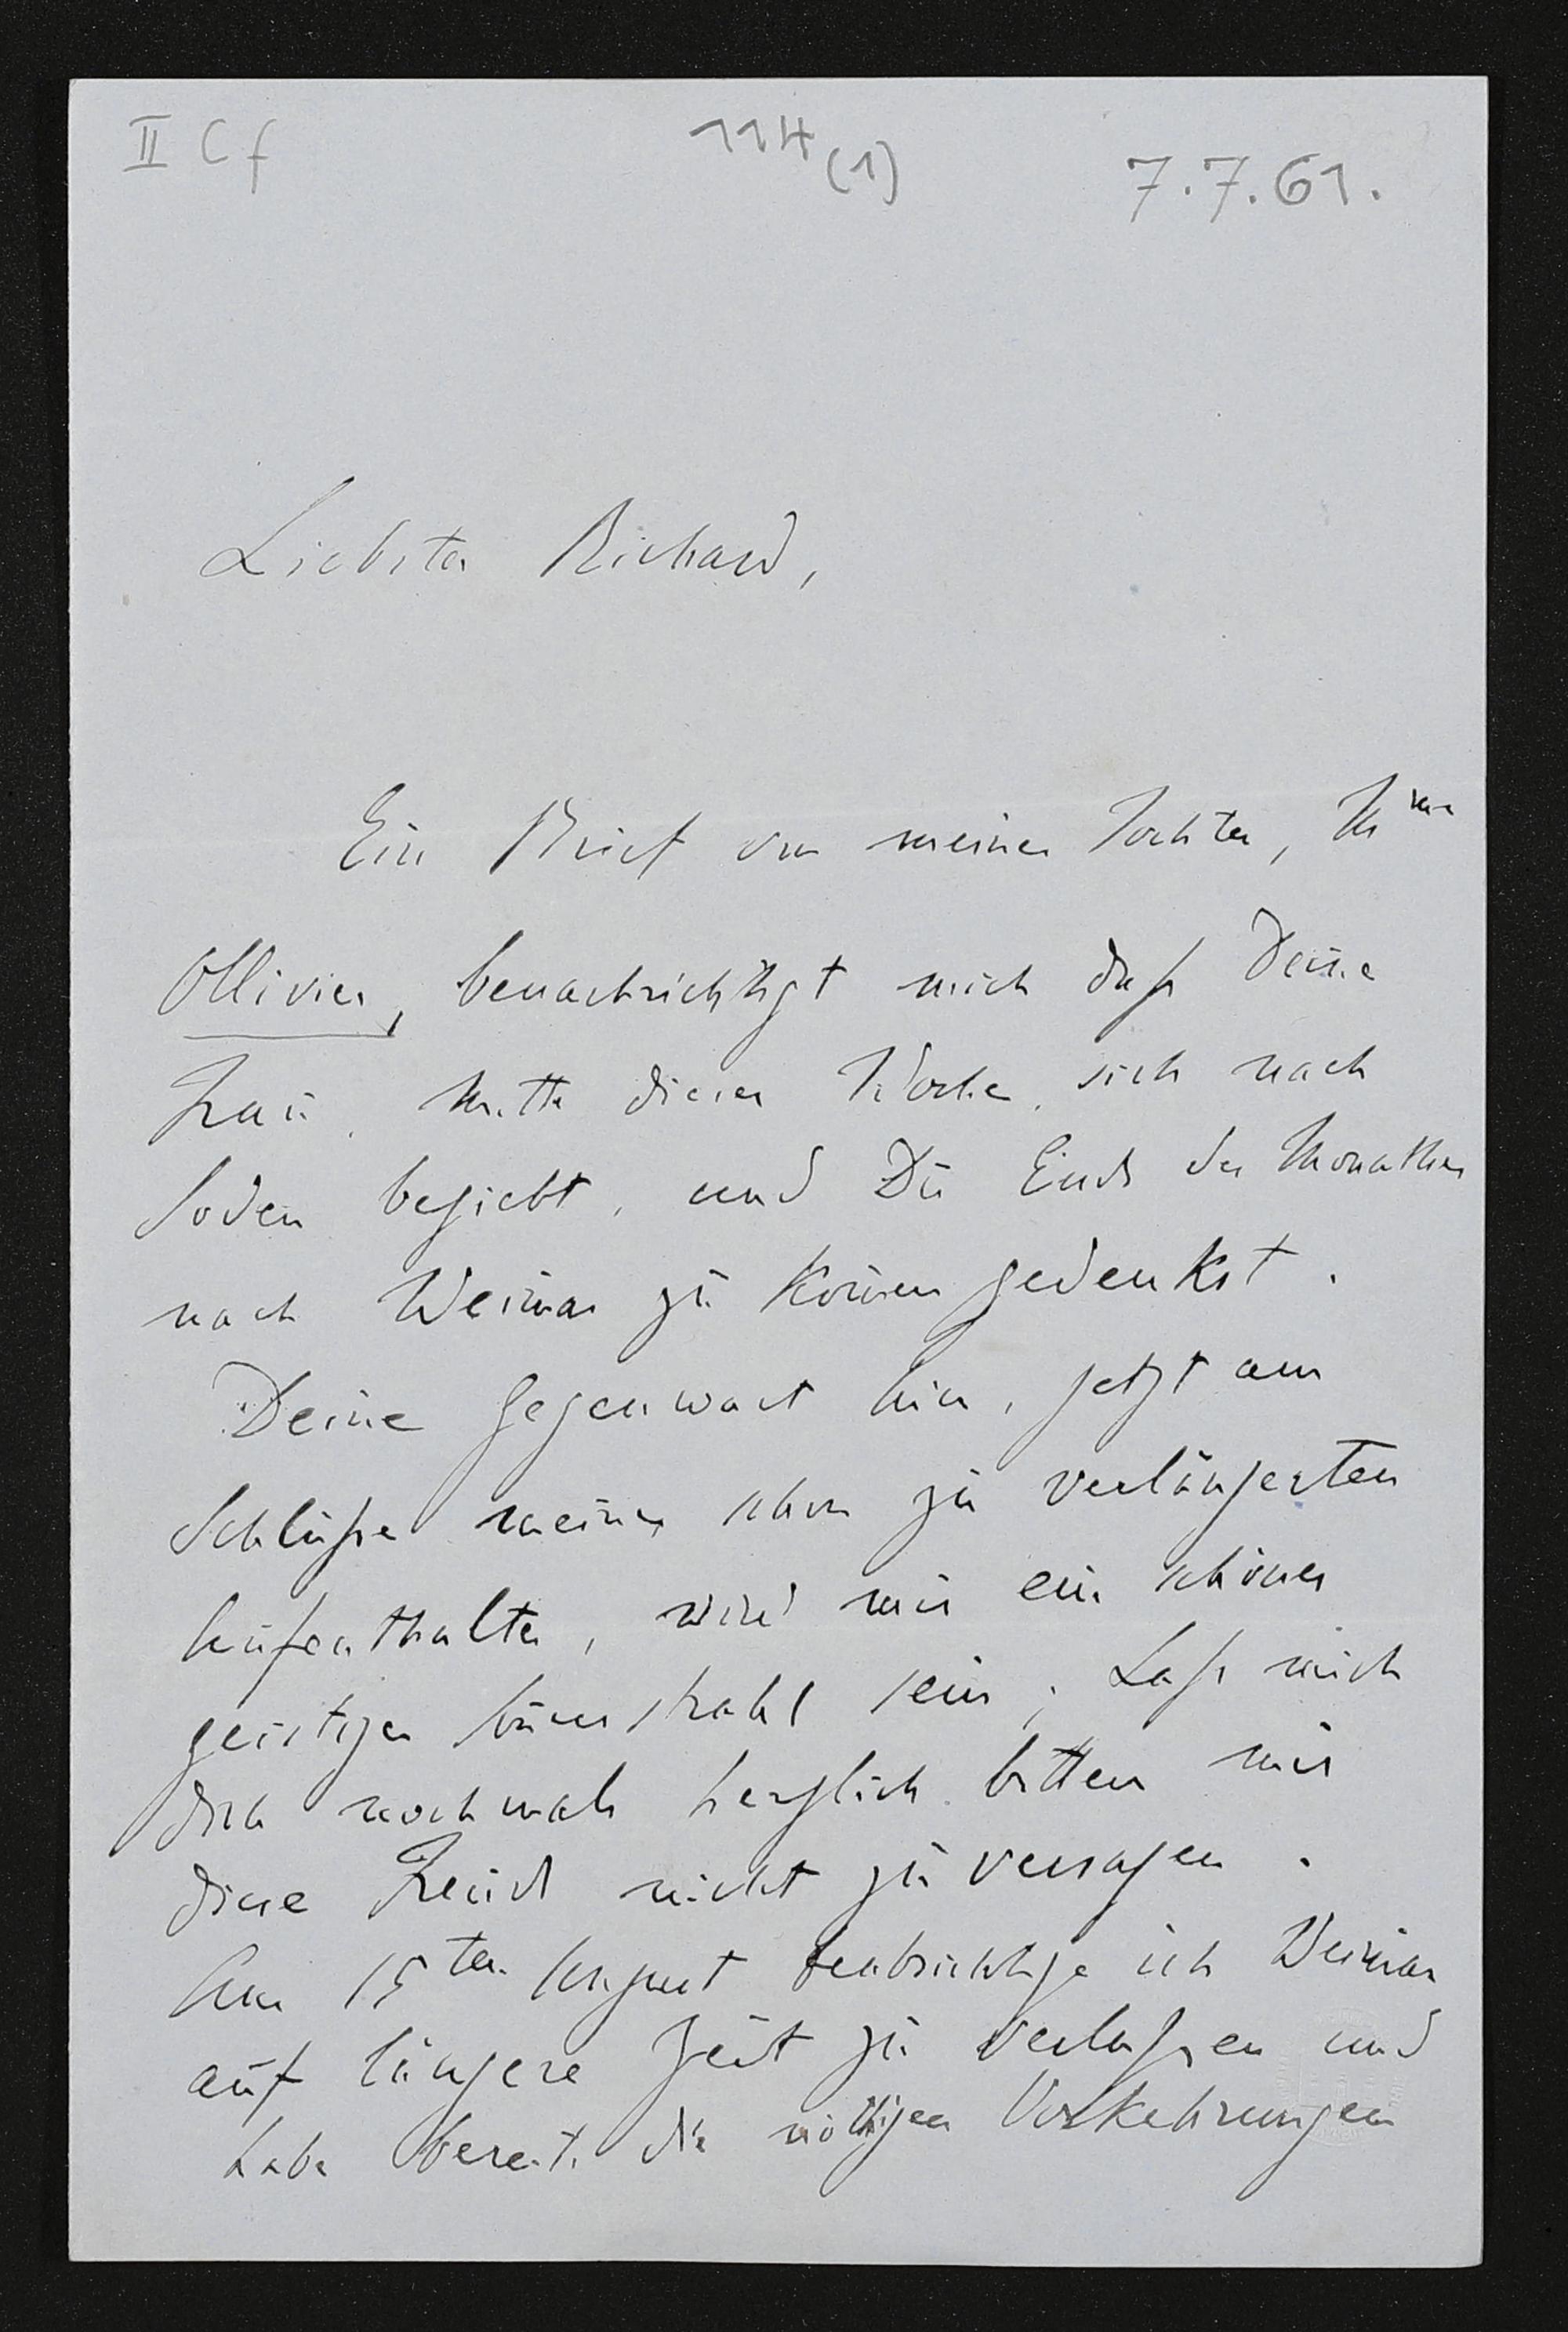 II Cf
114 (1)
7.7.61.
Liebster Richard,
Ein Brief von meiner Tochter, Mme
Ollivier, benachrichtigt mich dass Deine
Frau, Mitte dieser Woche, sich nach
Soden begiebt, und Du Ende des Monathes
nach Weimar zu kommen gedenkst.
Deine Gegenwart hier, jetzt am
Schlusse meines schon zu verlängerten
Aufenthaltes, wird mir ein schöner
geistiger strahl sein; Lass mich
Dich nochmals herzlich bitten mir
diese Freude nicht zu versagen.
Am 15ten August beabsichtige ich Weimar
auf längere Zeit zu verlassen und
habe bereits die nöthigen Vorkehrungen